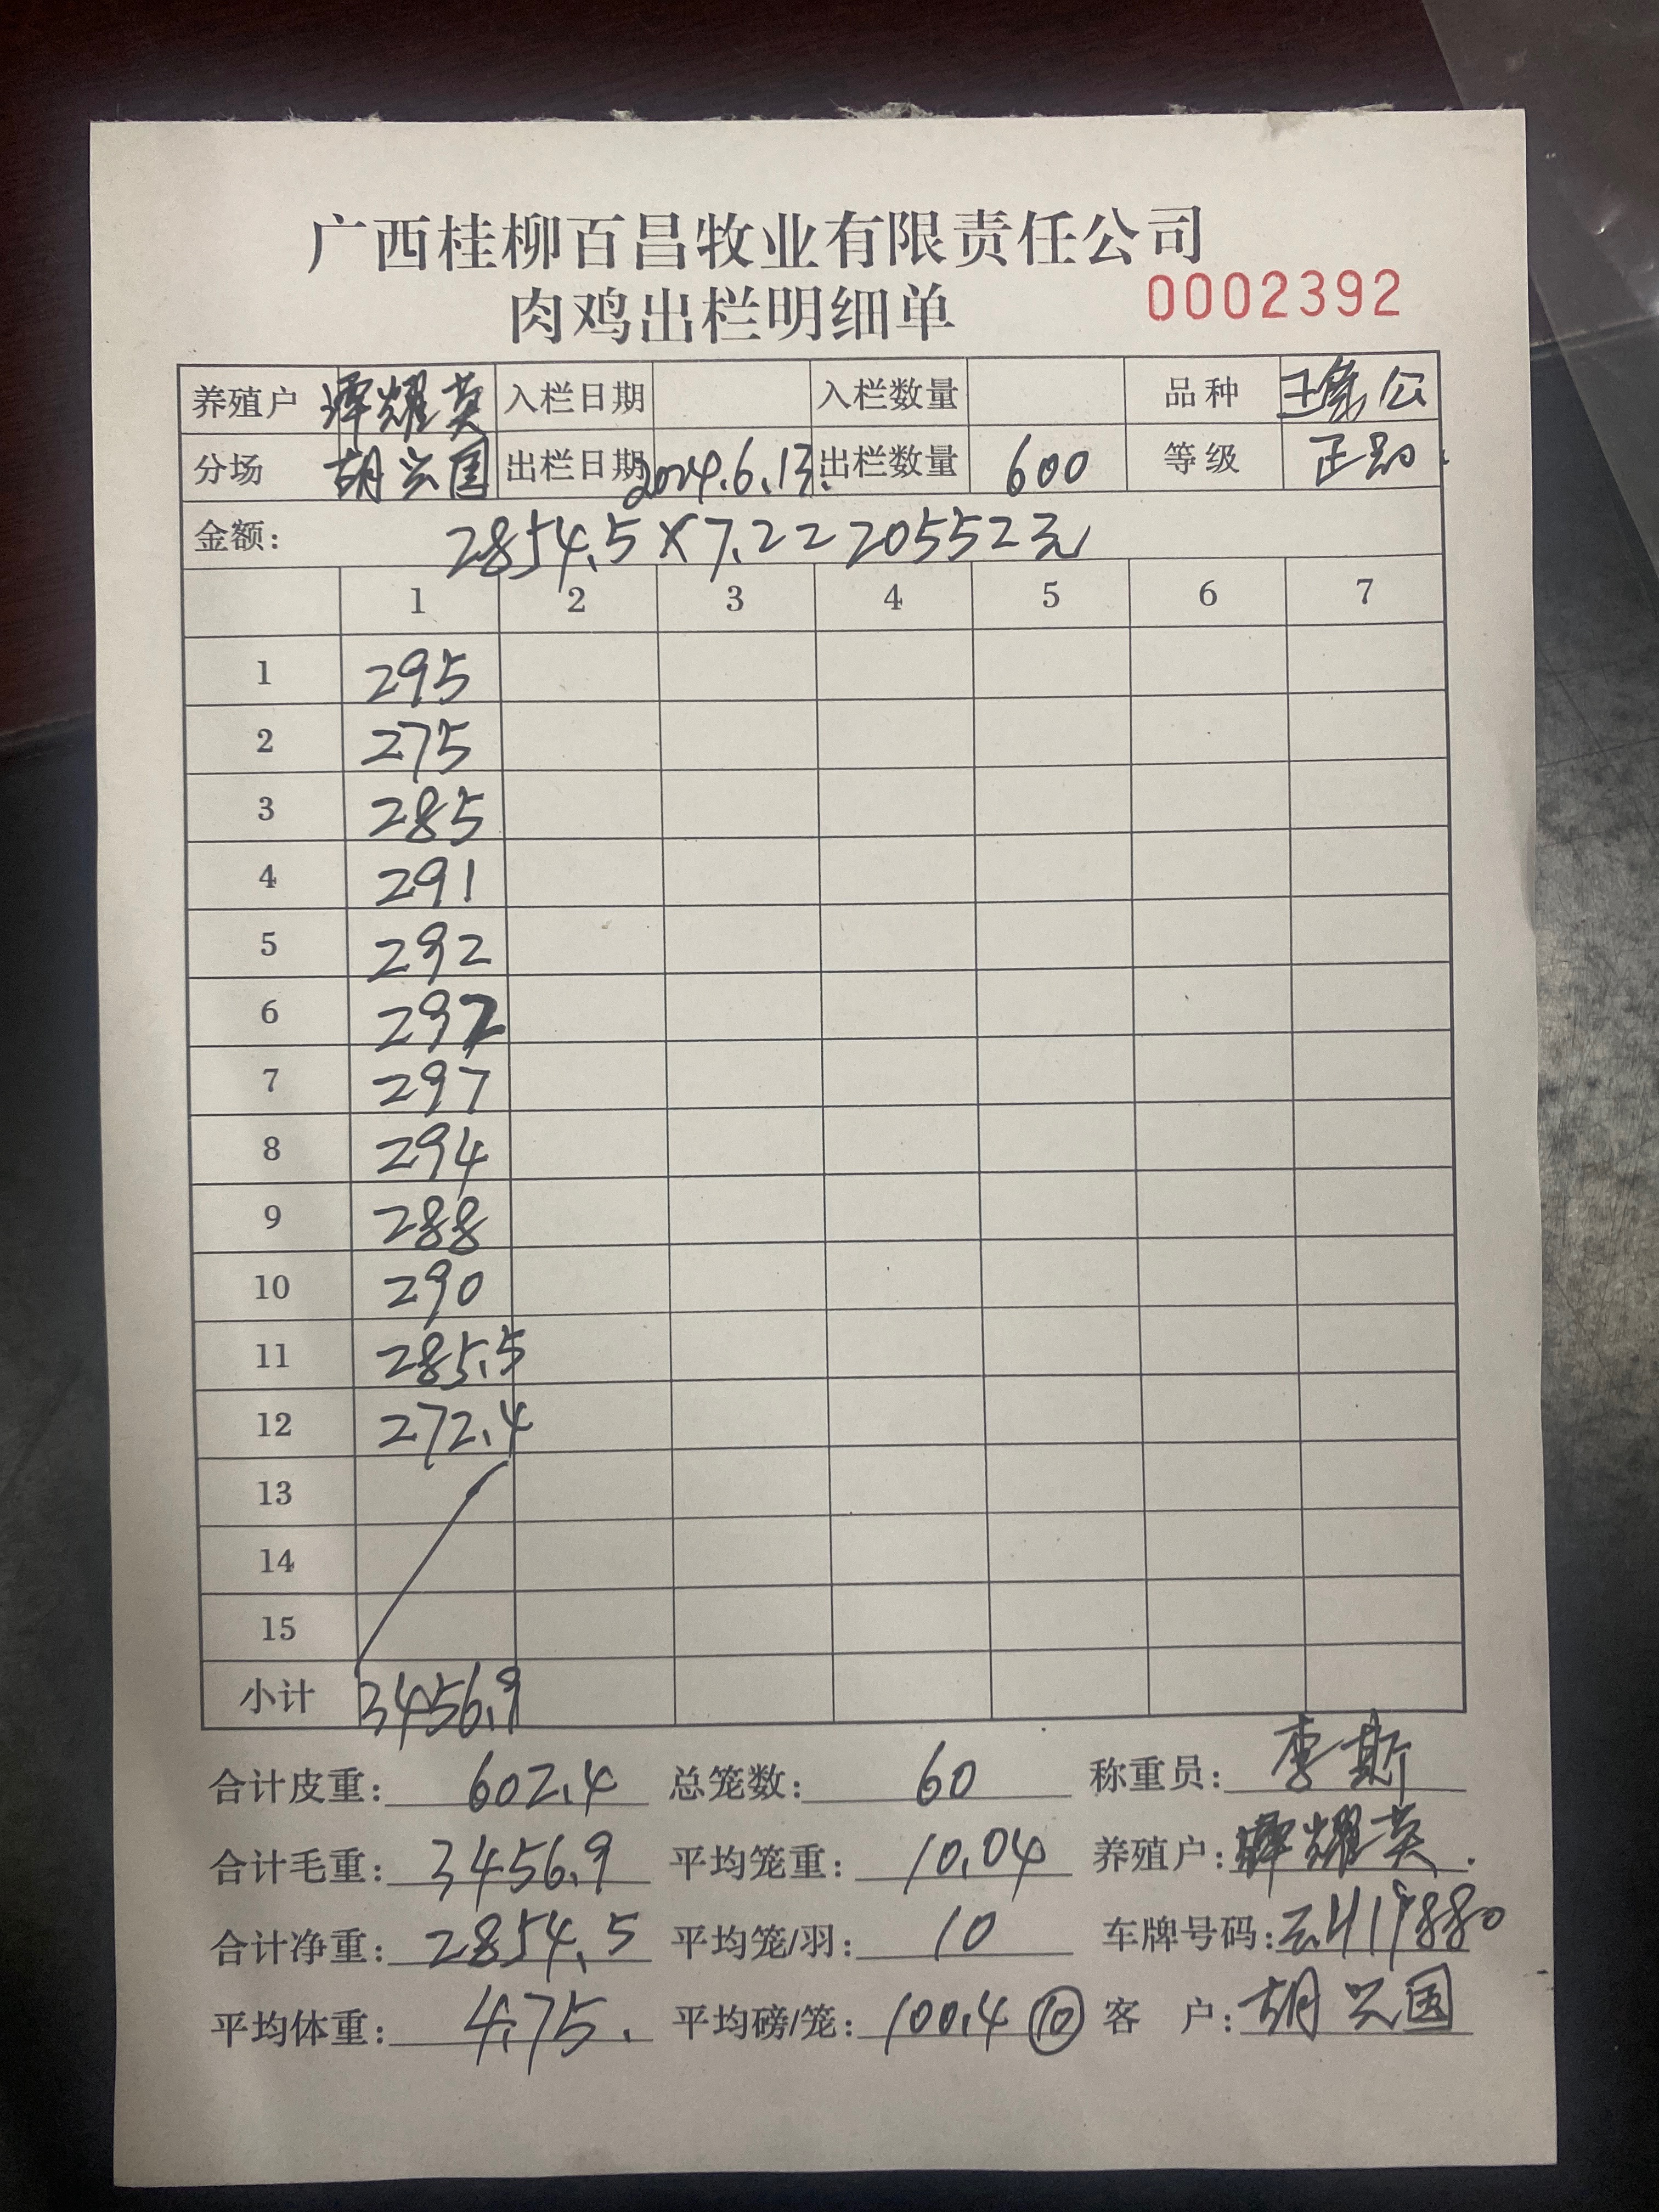 广西桂柳百昌牧业有限责任公司
肉鸡出栏明细单 0002392
养殖户 谭耀英 入栏日期 入栏数量 品种 公
分场 胡兴国 出栏日期 2024.6.13. 出栏数量 600 等级 正
金额: 2854.5×7.2=20552元
1 2 3 4 5 6 7
1 295
2 275
3 285
4 291
5 292
6 292
7 297
8 294
9 288
10 290
11 285.5
12 272.4
13
14
15
小计 3456.9
合计皮重: 602.4 总笼数: 60 称重员: 李斯
合计毛重: 3456.9 平均笼重: 10.04 养殖户: 谭耀英.
合计净重: 2854.5 平均笼/羽: 10 车牌号码: 云H19880
平均体重: 4.75. 平均磅/笼: 100.4 ⑩ 客 户: 胡兴国